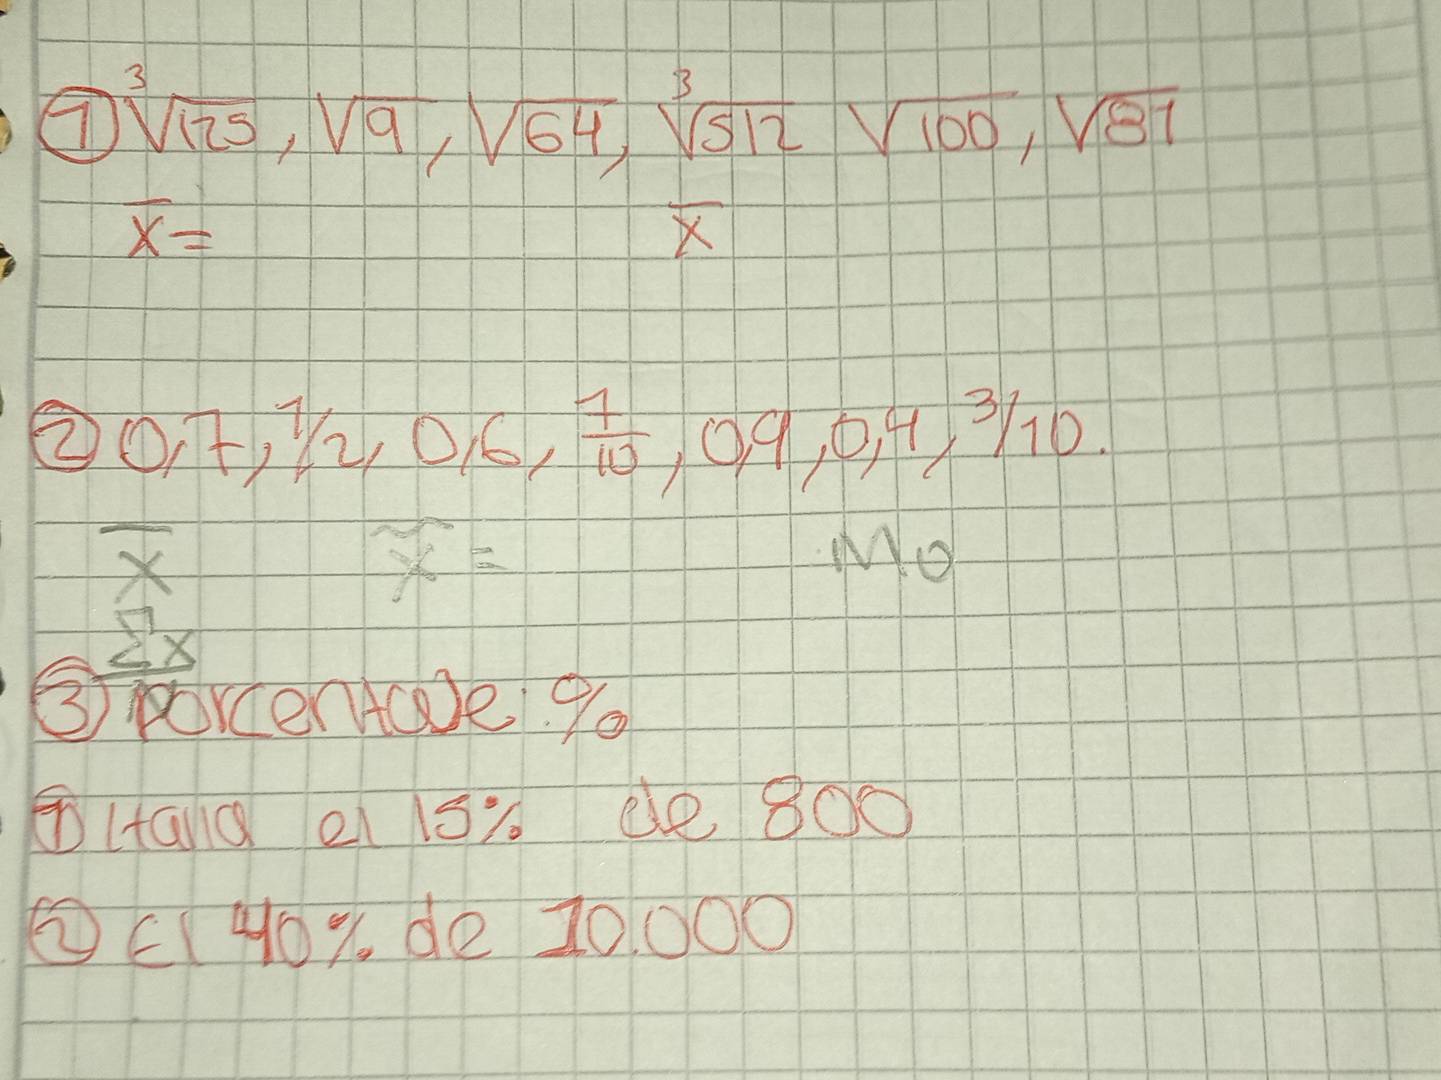 ① ³√125, √9, √64, ³√512 √100, √81
x̄= x̄
② 0,7, 1/2, 0,6, 1/10, 0,9, 0,4, 3/10.
x̄ x̃ = Mo
Σx
③ porcentaje: %
① Halla el 15% de 800
② El 40% de 10.000